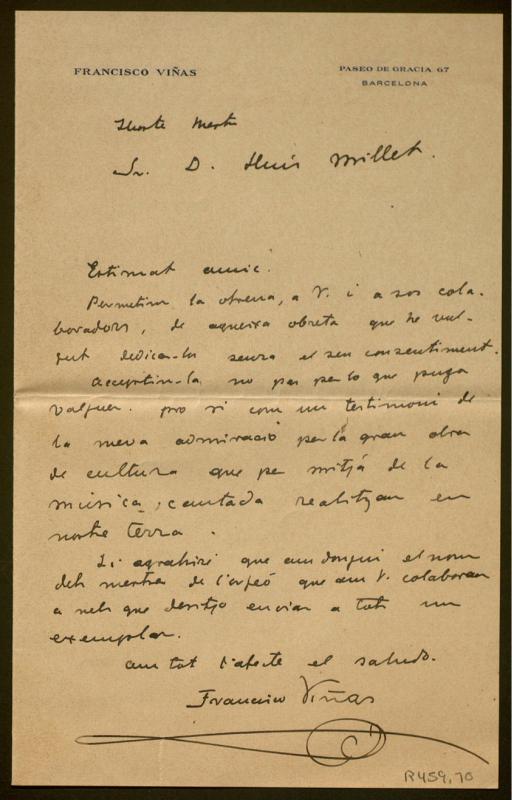 FRANCISCO VIÑAS
PASEO DE GRACIA 67
BARCELONA
Ilustre Mestre
Sr. D. Lluis Millet.
Estimat amic.
Permetim la ofrena, a V. i a sos cola-
boradors, de aqueixa obreta que he vul-
gut dedica-la sensa el seu consentiment.
Acceptin-la no pas per lo que puga
valguer. pro si com un testimoni de
la meva admiració per la gran obra
de cultura que per mitjá de la
música, cantada realitzan en
nostre terra.
Li agrahiré que am dongui el nom
dels mestres de l'orfeó que am V. colaboran
a nels que desitjo enviar a tots un
exemplar.
am tot l'afecte el saluda.
Francisco Viñas
R459,70